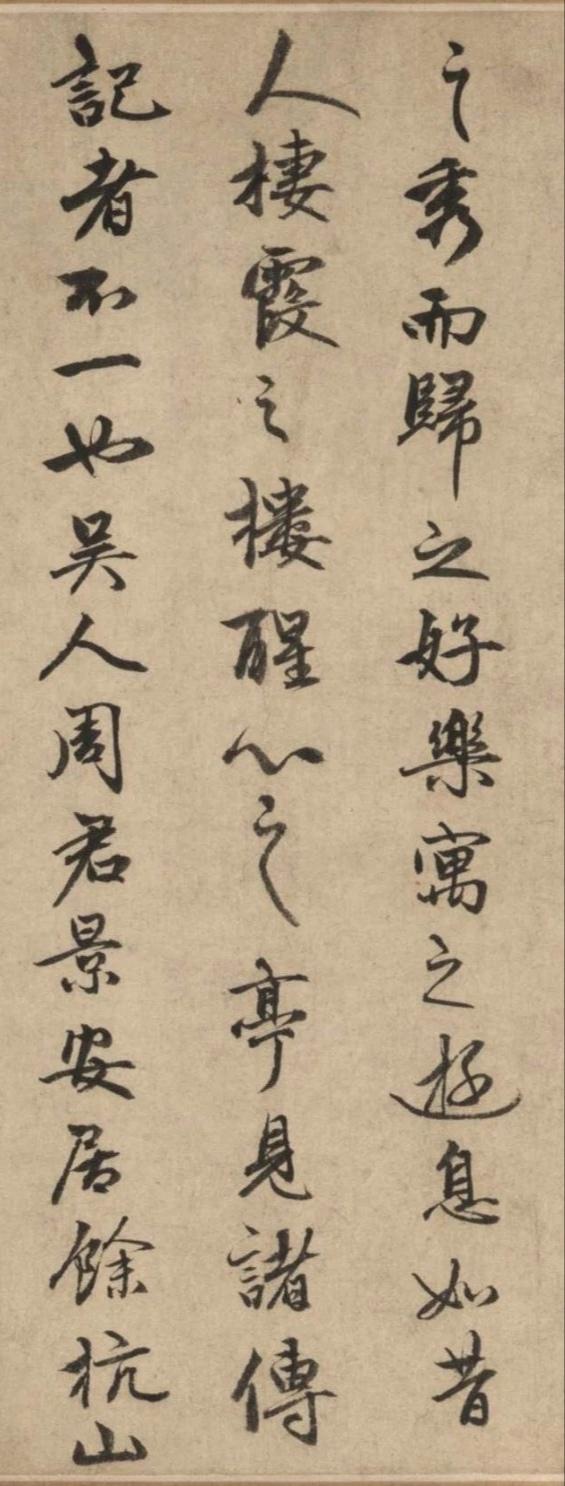 之秀而歸之好樂寓之遊息如昔
人棲霞之樓醒心之亭見諸傳
記者不一也吴人周君景安居餘杭山